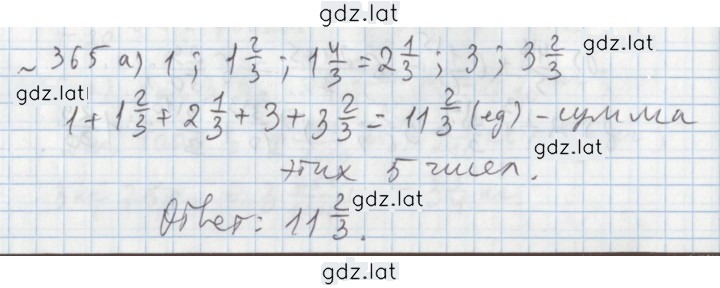 gdz.lat
~ 365 а) 1 ; 1 2/3 ; 1 4/3 = 2 1/3 ; 3 ; 3 2/3
gdz.lat
gdz.lat
1 + 1 2/3 + 2 1/3 + 3 + 3 2/3 = 11 2/3 (ед) - сумма
gdz.lat
этих 5 чисел.
Ответ: 11 2/3.
gdz.lat
gdz.lat